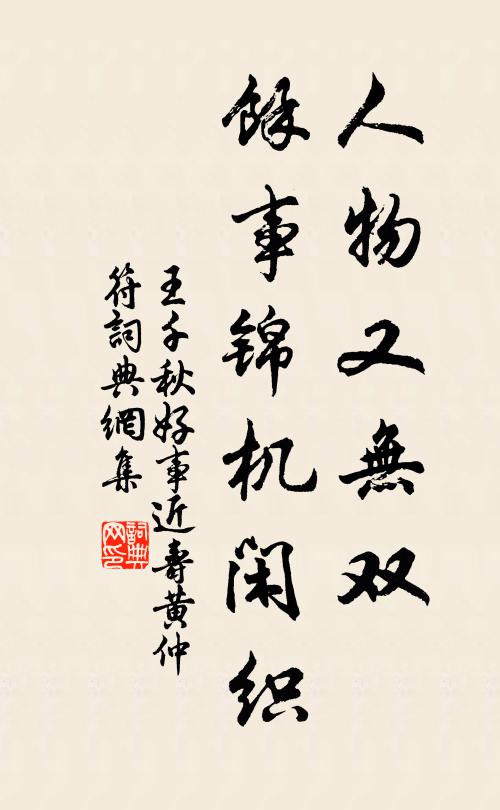 人物又無双
餘事锦机闲织
王千秋好事近壽黄仲
符詞典網集
詞典網印